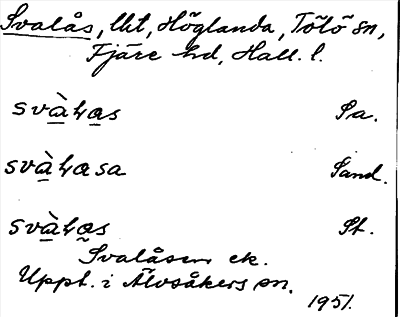 Svalås, lht, Höglanda, Tölö sn,
Fjäre hd, Hall. l.
svàɫas Sa.
svàɫasa Sand.
svàɫas St.
Svalåsen ek.
Uppt. i Älvsåkers sn.
1951.